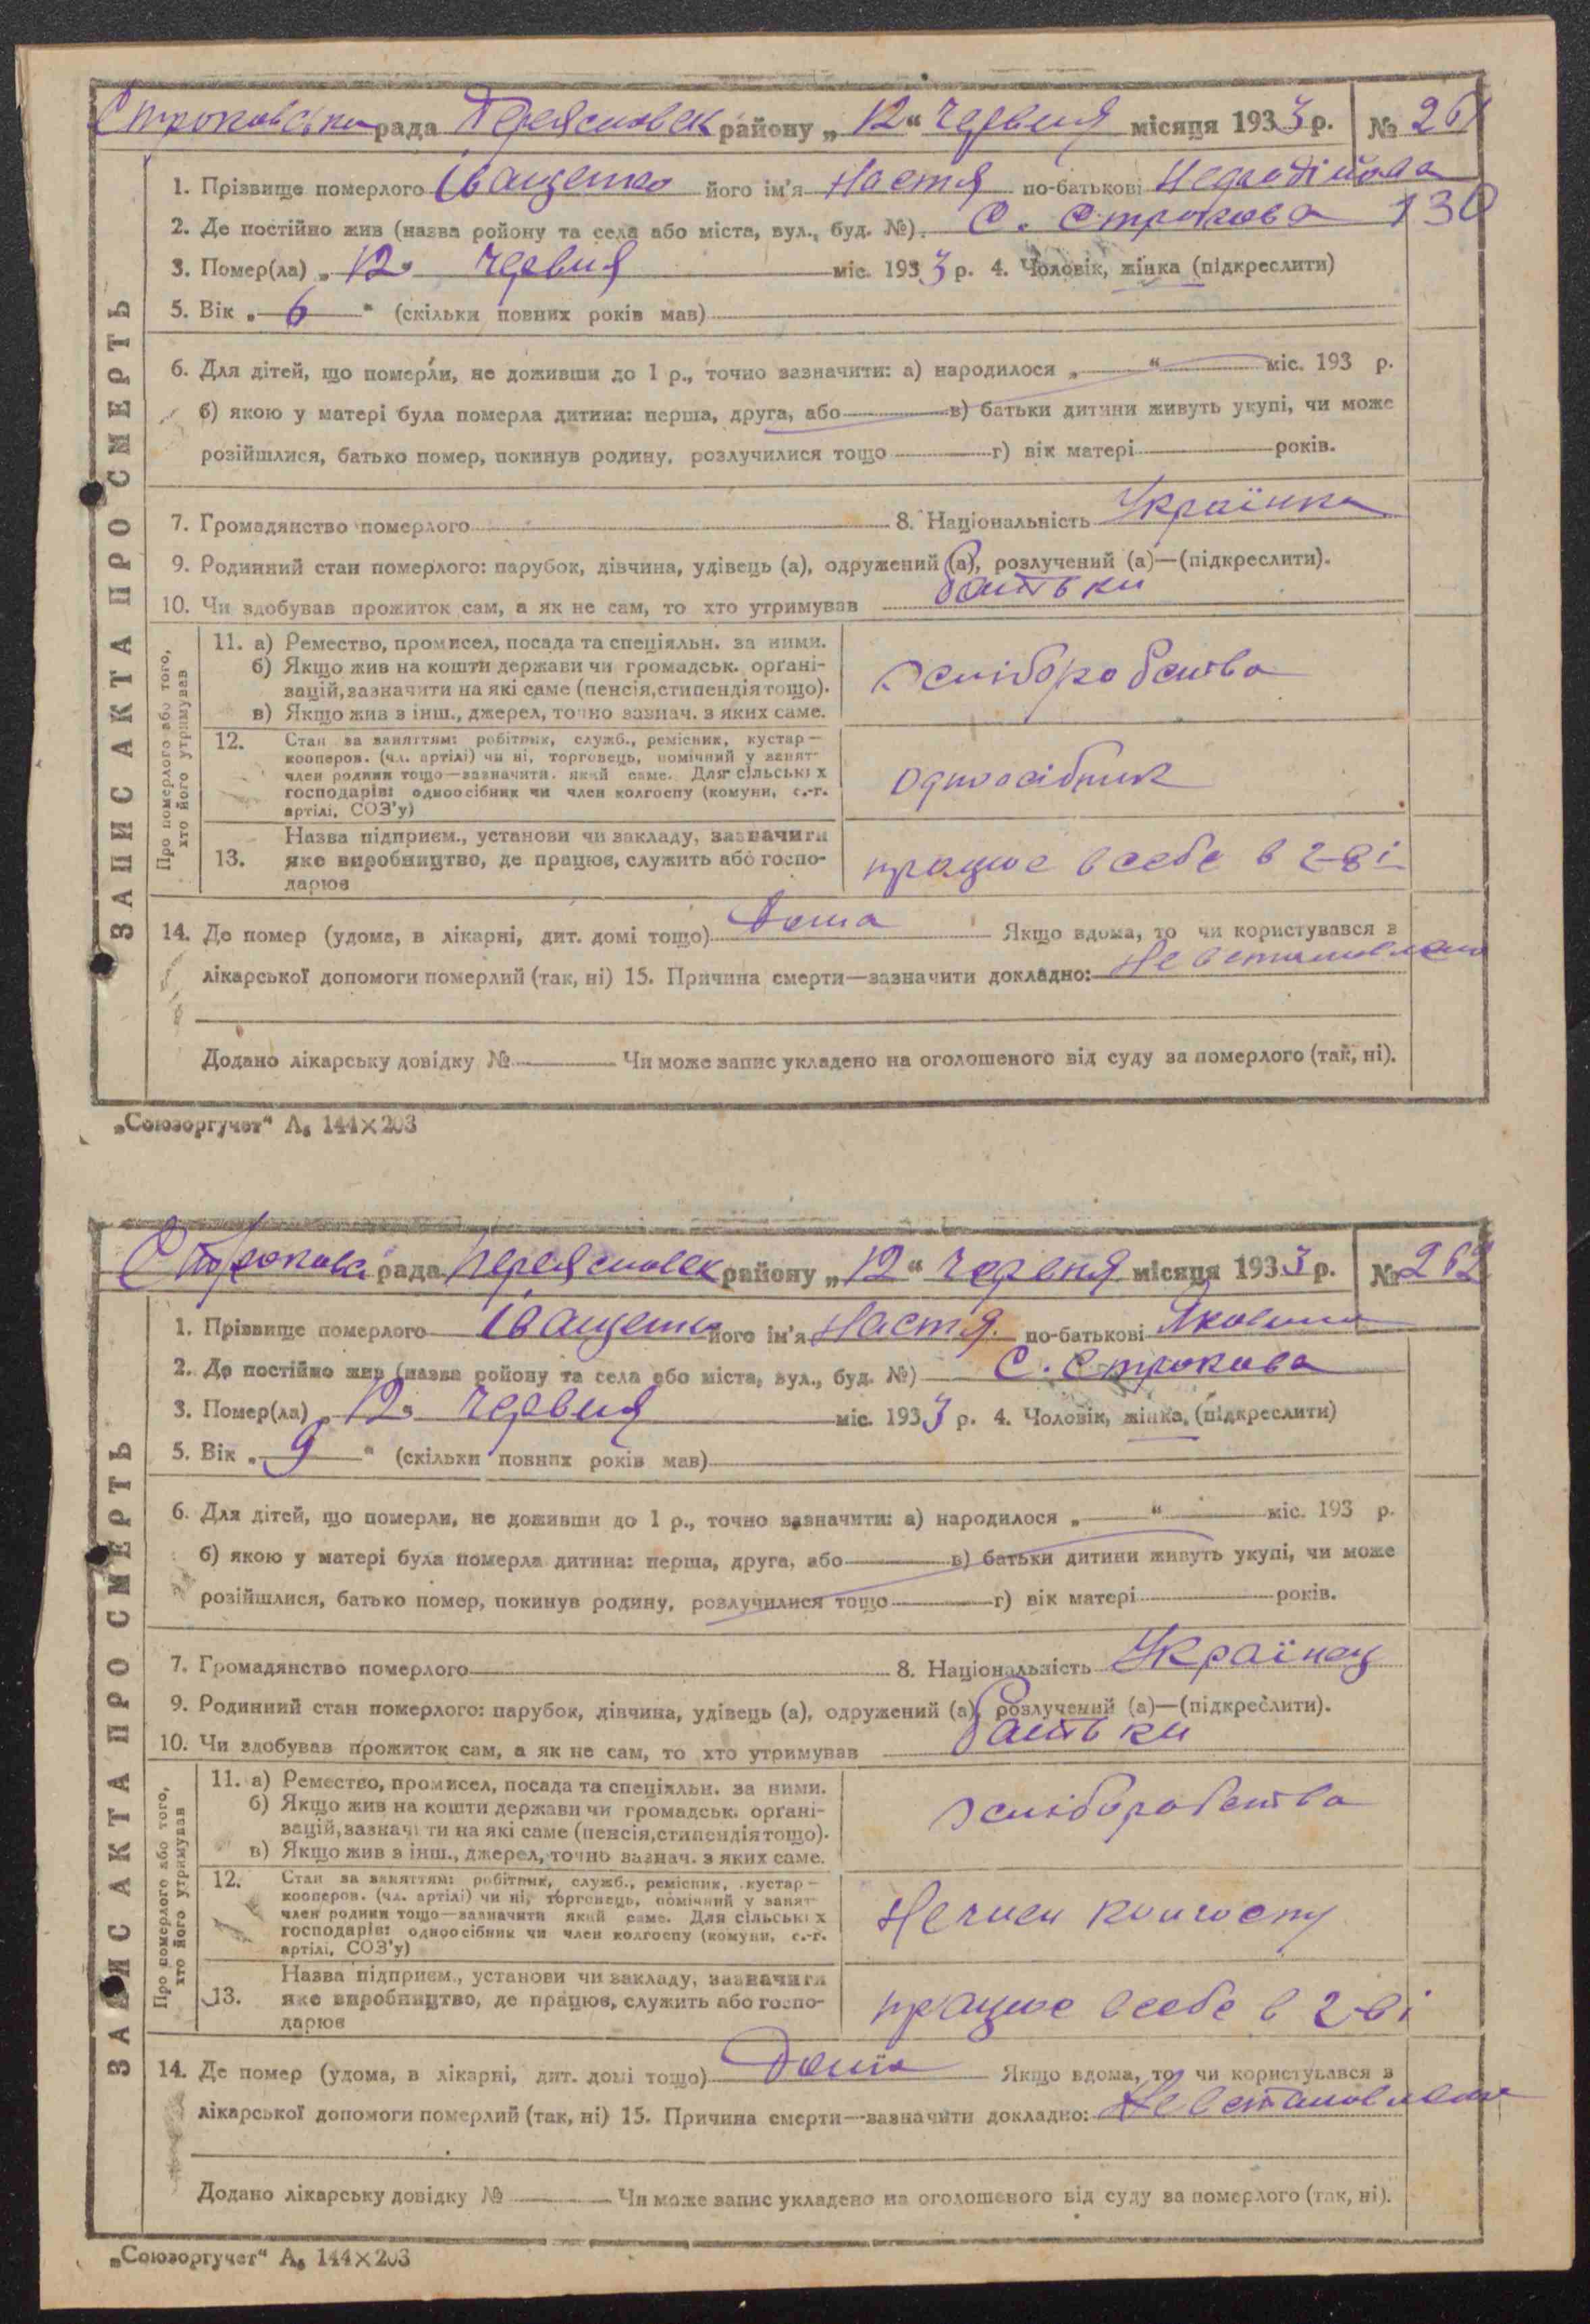 Строковська рада Переяславськ району „12“ червня місяця 1933 р. № 261
1. Прізвище померлого Іващенко його ім'я Настя по-батькові
130
2. Де постійно жив (назва ройону та села або міста, вул., буд. №). С. Строкова
3. Помер(ла) „12“ червня міс. 1933 р. 4. Чоловік, жінка (підкреслити)
5. Вік „6“ (скільки повних років мав)
6. Для дітей, що померли, не доживши до 1 р., точно зазначити: а) народилося „ “ міс. 193 р.
б) якою у матері була померла дитина: перша, друга, або в) батьки дитини живуть укупі, чи може
розійшлися, батько помер, покинув родину, розлучилися тощо г) вік матері років.
7. Громадянство померлого 8. Національність Українка
9. Родинний стан померлого: парубок, дівчина, удівець (а), одружений (а), розлучений (а)—(підкреслити).
10. Чи здобував прожиток сам, а як не сам, то хто утримував батьки
ЗАПИС АКТА ПРО СМЕРТЬ
Про померлого або того,
хто його утримував
11. а) Ремество, промисел, посада та спеціяльн. за ними.
б) Якщо жив на кошти держави чи громадськ. орґані-
зацій, зазначити на які саме (пенсія, стипендія тощо).
в) Якщо жив з інш., джерел, точно зазнач. з яких саме.
хліборобства
12. Стан за заняттям: робітник, служб., ремісник, кустар—
кооперов. (чл. артілі) чи ні, торговець, помічний у занят-
член родини тощо—зазначити, який саме. Для сільських
господарів: одноосібник чи член колгоспу (комуни, с.-г.
артілі, СОЗ'у)
одноосібник
13. Назва підприєм., установи чи закладу, зазначити
яке виробництво, де працює, служить або госпо-
дарює
працює в себе в г-ві
14. Де помер (удома, в лікарні, дит. домі тощо) Дома Якщо вдома, то чи користувався в
лікарської допомоги померлий (так, ні) 15. Причина смерти—зазначити докладно: Не встановлено
Додано лікарську довідку № Чи може запис укладено на оголошеного від суду за померлого (так, ні).
„Союзоргучет“ А₅ 144×203
Строковсь рада Переяславськ району „12“ червня місяця 1933 р. № 262
1. Прізвище померлого Іващенко його ім'я Настя. по-батькові Яковлівна
2. Де постійно жив (назва ройону та села або міста, вул., буд. №) С. Строкова
3. Помер(ла) „12“ червня міс. 1933 р. 4. Чоловік, жінка, (підкреслити)
5. Вік „9“ (скільки повних років мав)
6. Для дітей, що померли, не доживши до 1 р., точно зазначити: а) народилося „ “ міс. 193 р.
б) якою у матері була померла дитина: перша, друга, або в) батьки дитини живуть укупі, чи може
розійшлися, батько помер, покинув родину, розлучилися тощо г) вік матері років.
7. Громадянство померлого 8. Національність Українец
9. Родинний стан померлого: парубок, дівчина, удівець (а), одружений (а), розлучений (а)—(підкреслити).
10. Чи здобував прожиток сам, а як не сам, то хто утримував батьки
ЗАПИС АКТА ПРО СМЕРТЬ
Про померлого або того,
хто його утримував
11. а) Ремество, промисел, посада та спеціяльн. за ними.
б) Якщо жив на кошти держави чи громадськ. орґані-
зацій, зазначити на які саме (пенсія, стипендія тощо).
в) Якщо жив з інш., джерел, точно зазнач. з яких саме.
хліборобства
12. Стан за заняттям: робітник, служб., ремісник, кустар—
кооперов. (чл. артілі) чи ні, торговець, помічний у занят-
член родини тощо—зазначити який саме. Для сільських
господарів: одноосібник чи член колгоспу (комуни, с.-г.
артілі, СОЗ'у)
Не член колгоспу
13. Назва підприєм., установи чи закладу, зазначити
яке виробництво, де працює, служить або госпо-
дарює
працює в себе в г-ві
14. Де помер (удома, в лікарні, дит. домі тощо) Дома Якщо вдома, то чи користувався в
лікарської допомоги померлий (так, ні) 15. Причина смерти—зазначити докладно: Не встановлено
Додано лікарську довідку № Чи може запис укладено на оголошеного від суду за померлого (так, ні).
„Союзоргучет“ А₅ 144×203